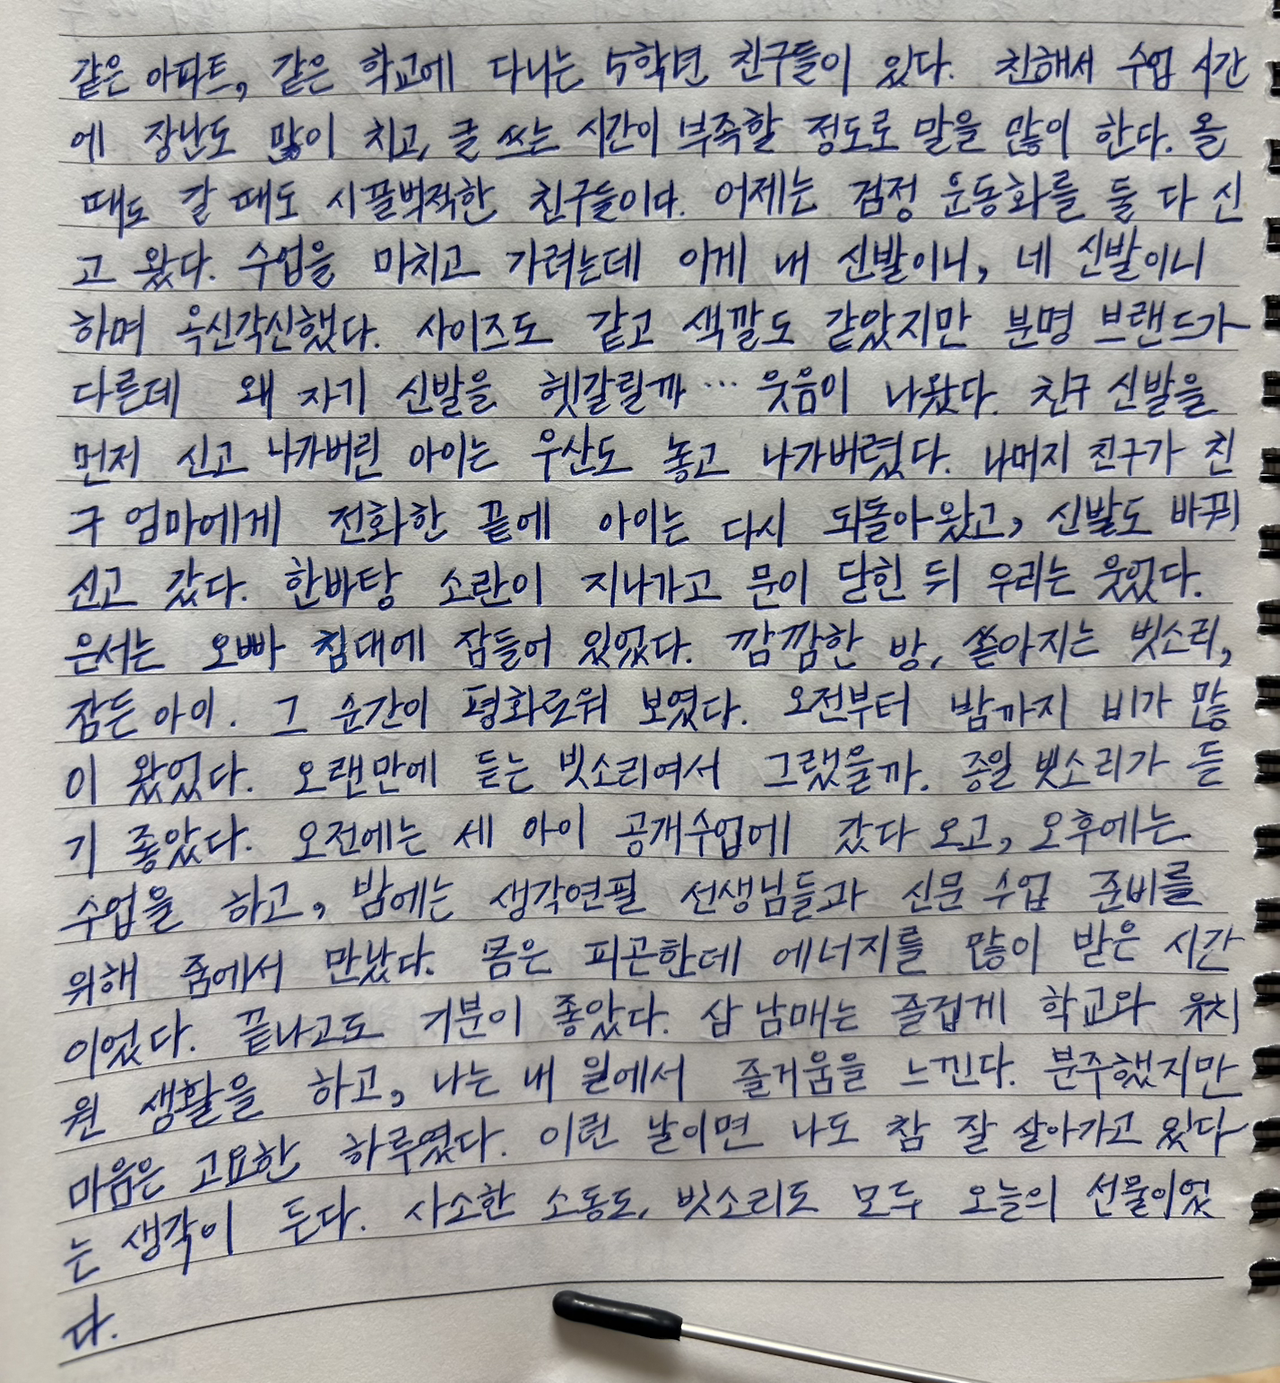 같은 아파트, 같은 학교에 다니는 5학년 친구들이 있다. 친해서 수업 시간
에 장난도 많이 치고, 글 쓰는 시간이 부족할 정도로 말을 많이 한다. 올
때도 갈 때도 시끌벅적한 친구들이다. 어제는 검정 운동화를 둘 다 신
고 왔다. 수업을 마치고 가려는데 이게 내 신발이니, 네 신발이니
하며 옥신각신했다. 사이즈도 같고 색깔도 같았지만 분명 브랜드가
다른데 왜 자기 신발을 헷갈릴까… 웃음이 나왔다. 친구 신발을
먼저 신고 나가버린 아이는 우산도 놓고 나가버렸다. 나머지 친구가 친
구 엄마에게 전화한 끝에 아이는 다시 되돌아왔고, 신발도 바꿔
신고 갔다. 한바탕 소란이 지나가고 문이 닫힌 뒤 우리는 웃었다.
은서는 오빠 침대에 잠들어 있었다. 깜깜한 방, 쏟아지는 빗소리,
잠든 아이. 그 순간이 평화로워 보였다. 오전부터 밤까지 비가 많
이 왔었다. 오랜만에 듣는 빗소리여서 그랬을까. 종일 빗소리가 듣
기 좋았다. 오전에는 세 아이 공개수업에 갔다 오고, 오후에는
수업을 하고, 밤에는 생각연필 선생님들과 신문 수업 준비를
위해 줌에서 만났다. 몸은 피곤한데 에너지를 많이 받은 시간
이었다. 끝나고도 기분이 좋았다. 삼 남매는 즐겁게 학교와 유치
원 생활을 하고, 나는 내 일에서 즐거움을 느낀다. 분주했지만
마음은 고요한 하루였다. 이런 날이면 나도 참 잘 살아가고 있다
는 생각이 든다. 사소한 소동도, 빗소리도 모두 오늘의 선물이었
다.